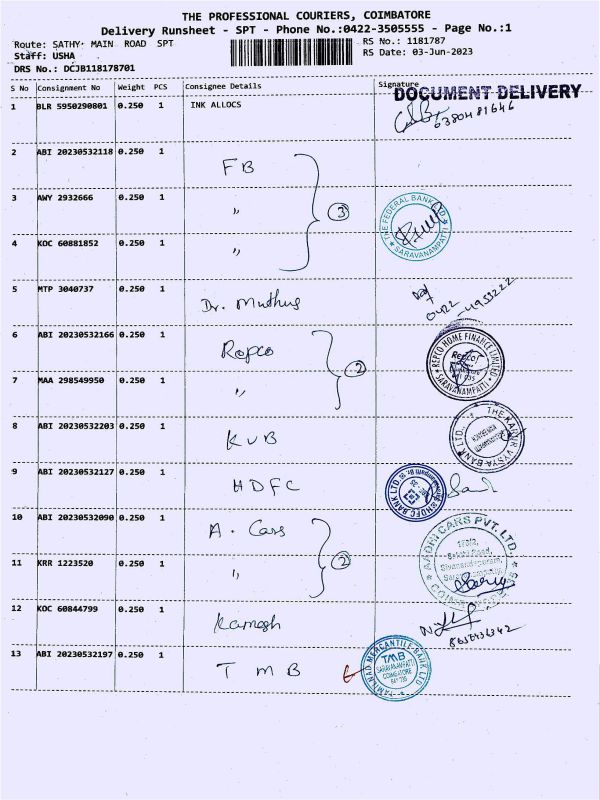 THE PROFESSIONAL COURIERS, COIMBATORE
Delivery Runsheet - SPT - Phone No.:0422-3505555 - Page No.:1
Route: SATHY MAIN ROAD SPT
RS No.: 1181787
Staff: USHA
RS Date: 03-Jun-2023
DRS No.: DCJB118178701
S No Consignment No Weight PCS Consignee Details Signature
DOCUMENT DELIVERY
1 BLR 5950290801 0.250 1 INK ALLOCS
6380481646
2 ABI 20230532118 0.250 1 FB
3 AWY 2932666 0.250 1 " 3
THE FEDERAL BANK LTD
SARAVANAMPATTI
4 KOC 60881852 0.250 1 "
5 MTP 3040737 0.250 1 Dr. Muthus
0422
6 ABI 20230532166 0.250 1 Repco 2
REPCO HOME FINANCE LIMITED
Repco
SARAVANAMPATTI
7 MAA 298549950 0.250 1 "
8 ABI 20230532203 0.250 1 KVB
THE KARUR VYSYA BANK LTD.,
9 ABI 20230532127 0.250 1 HDFC
HDFC BANK LTD.
10 ABI 20230532090 0.250 1 A. Cars 2
AADRI CARS PVT. LTD.
11 KRR 1223520 0.250 1 "
12 KOC 60844799 0.250 1 Kamash
13 ABI 20230532197 0.250 1 TMB
TAMILNAD MERCANTILE BANK LTD
TMB
SARAVANAMPATTI
COIMBATORE